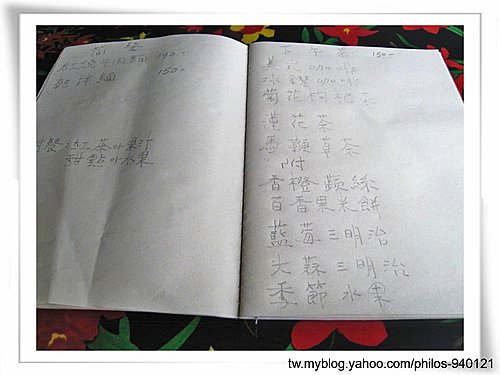 簡餐
紅燒牛肉麵 190-
乾拌麵 150-
附餐 紅茶or果汁
甜點or水果
下午茶 150-
美式咖啡
冰鑽咖啡
菊花枸杞茶
蓮花茶
馬鞭草茶
附
香橙蘋絲
百香果米餅
藍莓三明治
大蒜三明治
季節水果
tw.myblog.yahoo.com/philos-940121